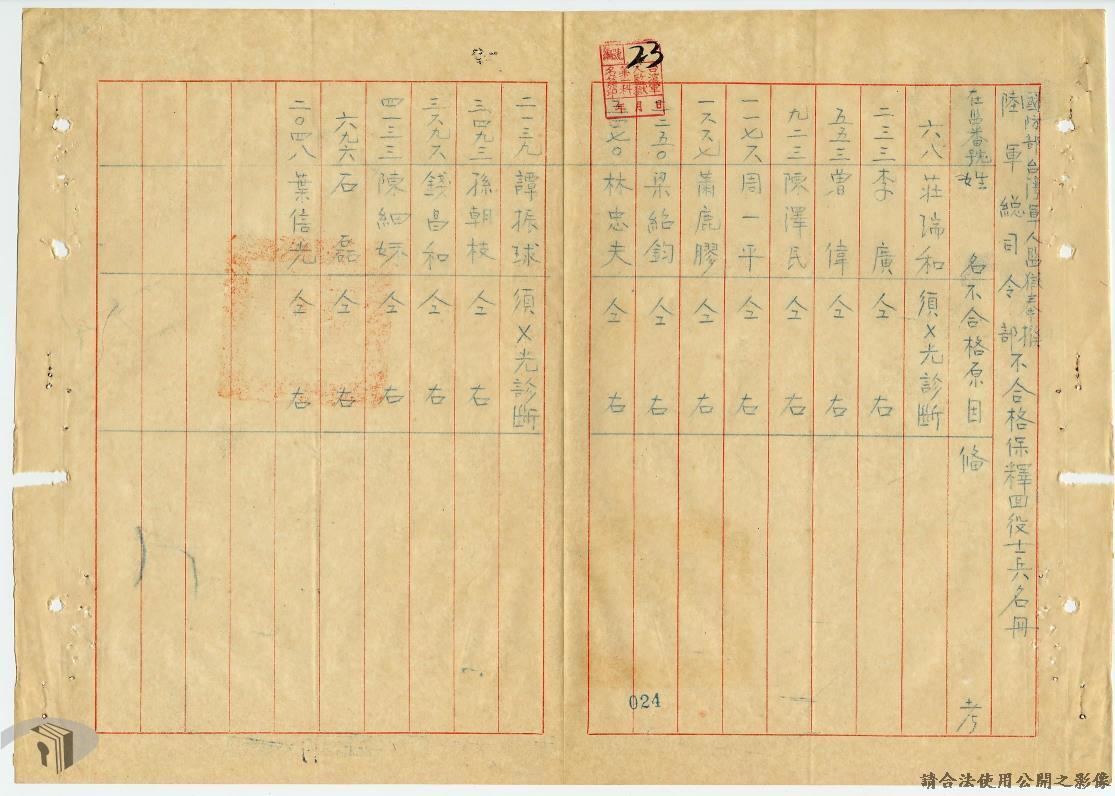 國防部台灣軍人監獄奉撥
陸軍總司令部不合格保釋回役士兵名冊
在監番號 姓名 不合格原因 備考
六八 莊瑞和 須X光診斷
二三三 李廣 仝右
五五三 曾偉 仝右
九二三 陳澤民 仝右
一一七六 周一平 仝右
一六六七 蕭鹿膠 仝右
二五〇 梁紹鈞 仝右
七〇 林忠夫 仝右
二一三九 譚振球 須X光診斷
三四九三 孫朝枝 仝右
三六九六 錢昌和 仝右
四一三三 陳細妹 仝右
六九六 石磊 仝右
二〇四八 葉信光 仝右
編號 23
年月日
024
請合法使用公開之影像